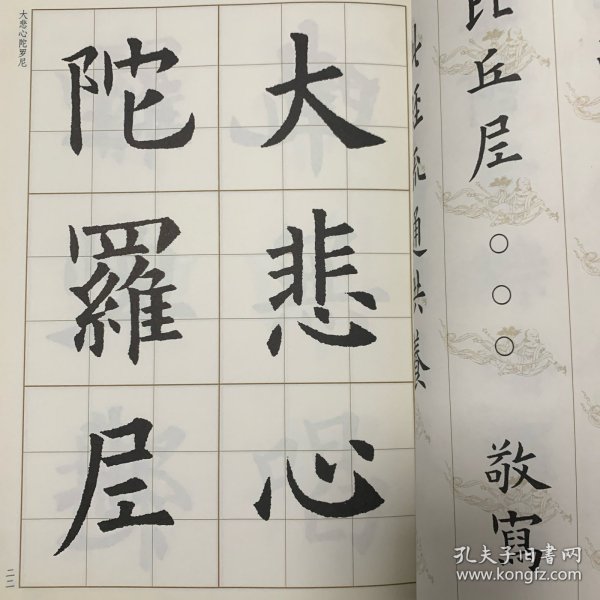 比丘尼○○○敬寫
流通供養
大悲心
陀羅尼
大悲心陀罗尼
二二
孔夫子旧书网
www.kongfz.com